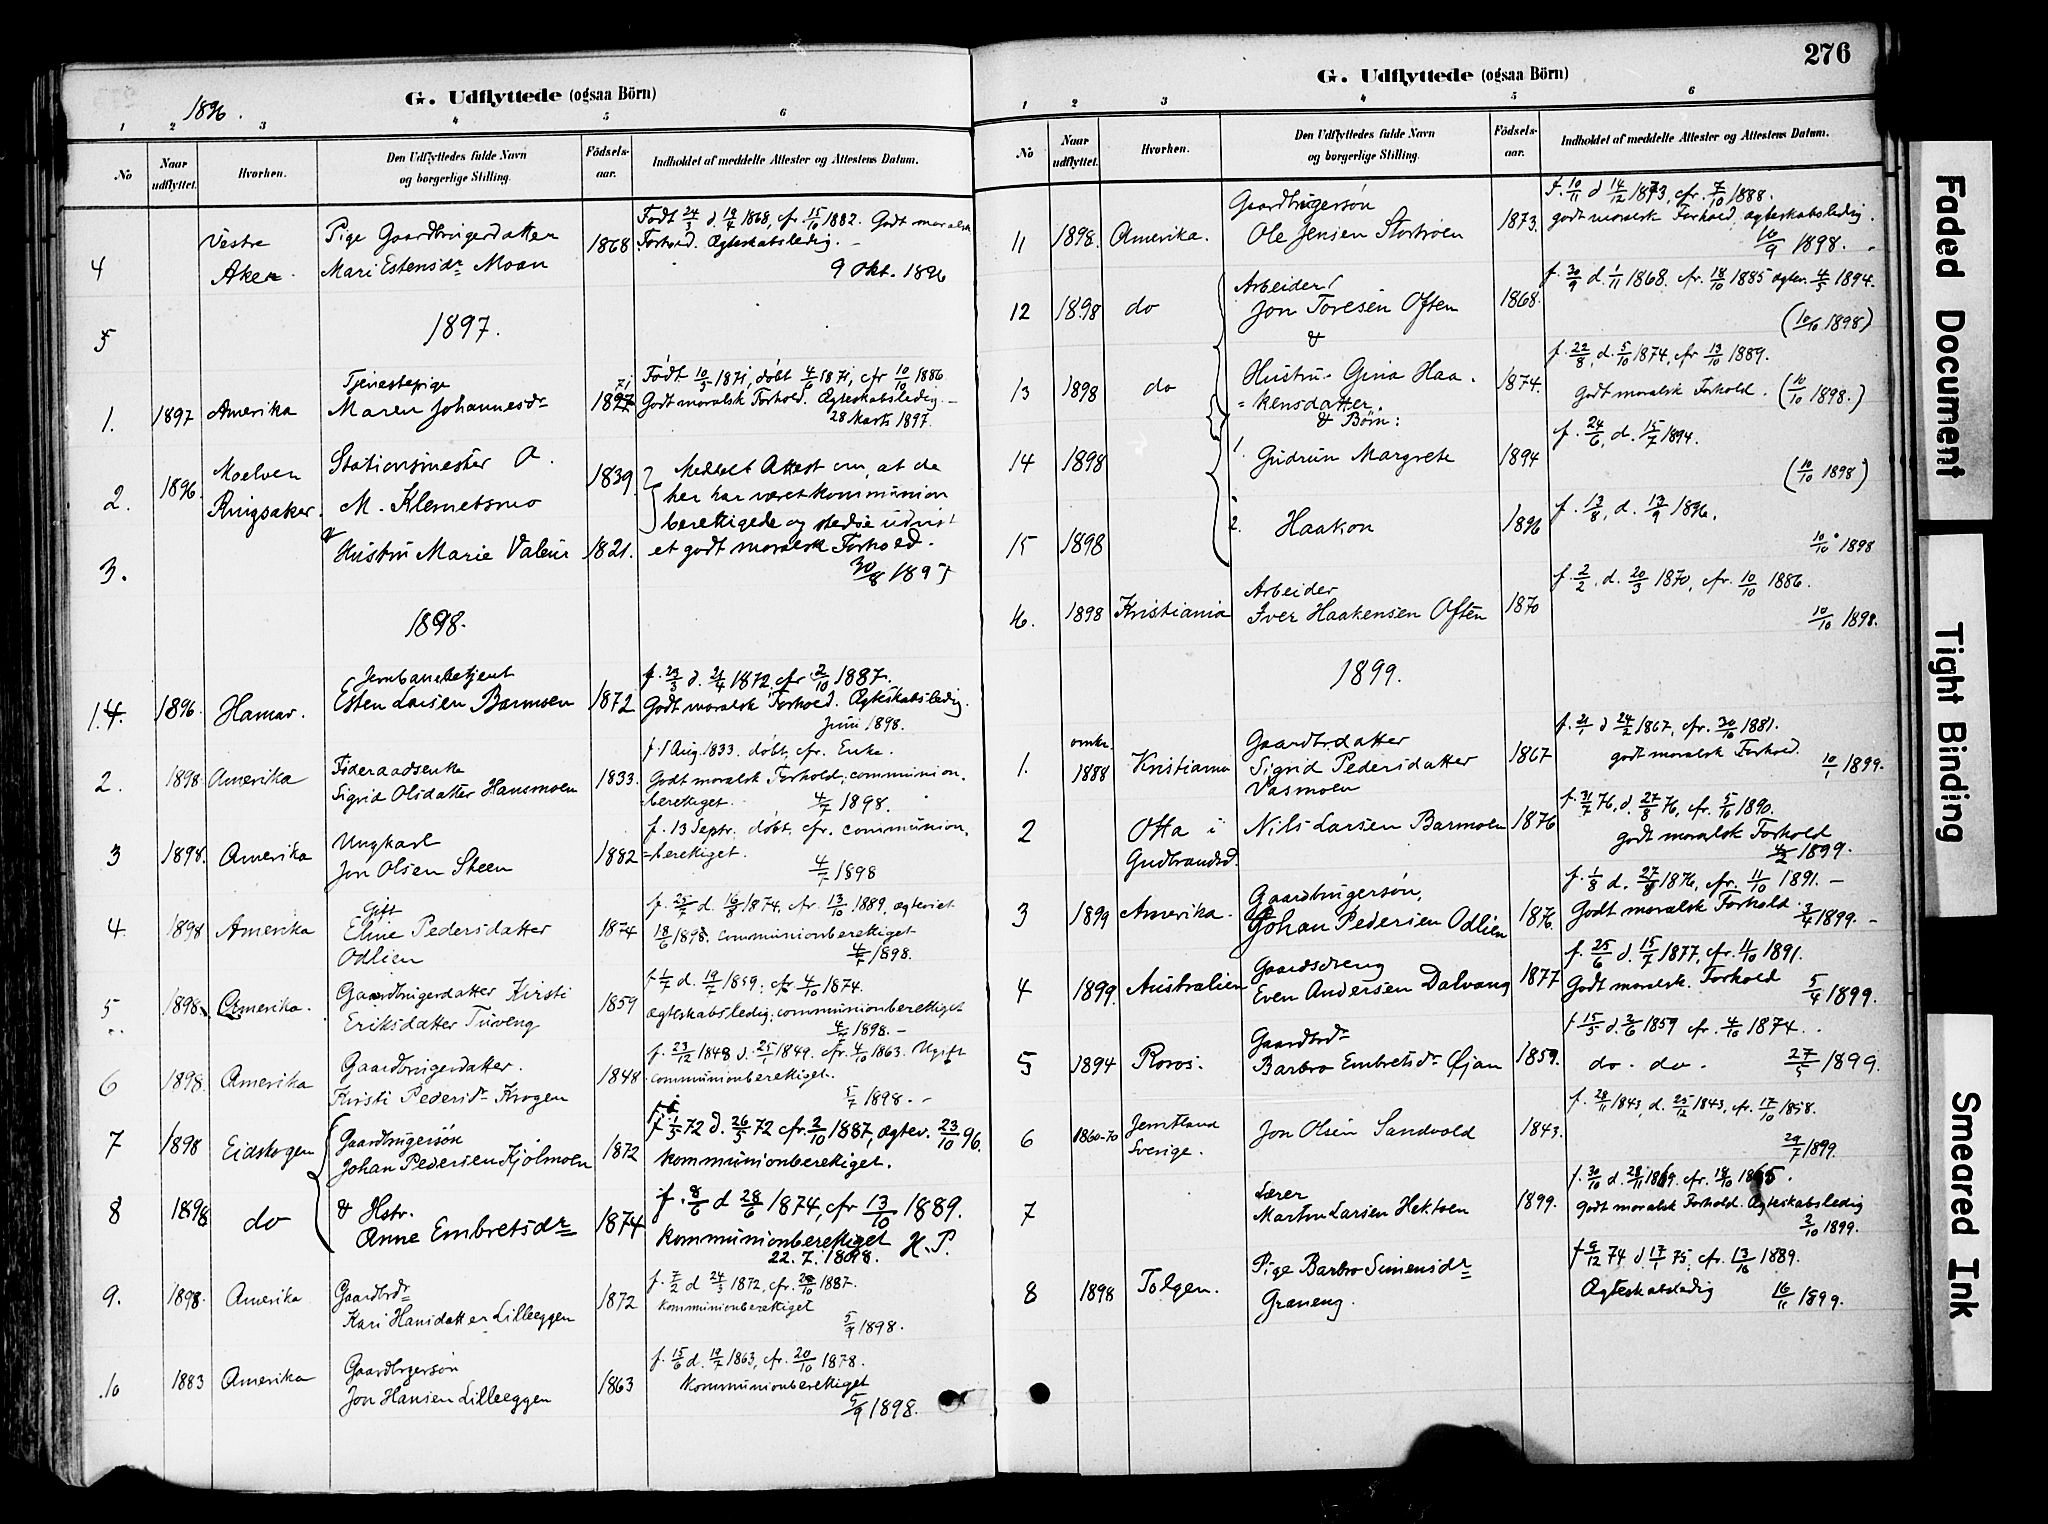 276
G. Udflyttede (ogsaa Börn)
1896.
1 2 3 4 5 6
No
Naar udflyttet.
Hvorhen.
Den Udflyttedes fulde Navn og borgerlige Stilling.
Födsels-aar.
Indholdet af meddelte Attester og Attestens Datum.
4 Vestre Aker. Pige Gaardbrugerdatter
Mari Estensdr Moan 1868
Født 24/3 d 19/4 1868, cfr 15/10 1882. Godt moralsk
Forhold. Ægteskabsledig. –
9 Okt. 1896
5 1897.
1. 1897 Amerika Tjenestepige
Maren Johannesdr 71
Født 10/5 1871, døbt 4/6 1871, cfr 10/10 1886
Godt moralsk Forhold. Ægteskabsledig. –
28 Marts 1897.
2. 1896. Moelven Ringsaker. Stationsmester O.
M. Klemetsmo 1839
3. & Hustru Marie Valeur 1821.
Meddelt Attest om, at de
her har været kommunion
berettigede og stedse udvist
et godt moralsk Forhold.
30/8 1897
1898.
1. 1896. Hamar. Jernbanebetjent
Esten Larsen Barmoen 1872
f. d. 1872 cfr 2/10 1887.
Godt moralsk Forhold. Ægteskabsledig.
Juni 1898.
2. 1898 Amerika Føderaadsenke
Sigrid Olsdatter Hansmoen 1833.
f 1 Aug. 1833. døbt, cfr. Enke.
Godt moralsk Forhold, communion-
=berettiget. 4/7 1898.
3 1898. Amerika Ungkarl
Jon Olsen Steen 1882
f. 13 Septr. døbt, cfr. communion-
=berettiget.
4/7 1898
4. 1898 Amerika Gift
Eline Pedersdatter
Odlien 1874
f. 25/7 d. 16/8 1874, cfr. 13/10 1889, ægteviet
18/6 1898. communionberettiget
4/7 1898.
5 1898. Amerika. Gaardbrugerdatter Kirsti
Eriksdatter Tuveng 1859
f 1/7 d. 19/7 1859; cfr 4/10 1874.
ægteskabsledig; communionberettiget
4/7 1898. –
6 1898. Amerika Gaardbrugerdatter.
Kirsti Pedersdr Krogen 1848
f. 23/12 1848 d. 25/1 1849. cfr. 4/10 1863. Ugift
communionberettiget.
5/7 1898. –
7 1898 Eidskogen Gaardbrugersøn
Johan Pedersen Kjølmoen 1872
f. 1/5 72 d. 26/5 72 cfr. 2/10 1887, ægtev. 23/10 96.
kommunionberettiget.
8 1898 do & Hstr.
Anne Embretsdr 1874
f. 8/6 d 28/6 1874, cfr 13/10 1889.
kommunionberettiget H. P.
22. 7. 1898.
9. 1898. Amerika Gaardbrdr
Kari Hansdatter Lilleeggen 1872
f. 7/2 d 24/3 1872, cfr. 1887.
kommunionberettiget
5/9 1898.
10 1883 Amerika Gaardbrgersøn
Jon Hansen Lilleeggen 1863
f. 15/6 d. 19/7 1863, cfr. 20/10 1878.
kommunionberettiget
5/9 1898.
G. Udflyttede (ogsaa Börn)
1 2 3 4 5 6
No
Naar udflyttet.
Hvorhen.
Den Udflyttedes fulde Navn og borgerlige Stilling.
Födsels-aar.
Indholdet af meddelte Attester og Attestens Datum.
11 1898. Amerika. Gaardbrugersøn
Ole Jensen Stortrøen 1873.
f. 10/11 d 14/12 1873, cfr. 7/10 1888.
godt moralsk Forhold, ægteskabsledig.
10/9 1898.
12 1898 do Arbeider
Jon Toresen Often 1868.
f. 30/9 d. 1/11 1868. cfr. 18/10 1885 ægtev. 4/5 1894.
(10/10 1898)
&
13 1898 do Hustru Gina Haa-
=kensdatter. 1874.
f. 22/8, d. 5/10 1874, cfr 13/10 1889.
godt moralsk Forhold. (10/10 1898.)
& Børn:
14 1898 1. Gudrun Margrete 1894
f. 24/6, d. 15/7 1894.
(10/10 1898)
15 1898 2. Haakon 1896
f. 13/8, d. 13/9 1896.
10/10 1898
16. 1898 Kristiania Arbeider
Iver Haakensen Often 1870
f. 2/2, d. 20/3 1870, cfr. 10/10 1886.
10/10 1898.
1899.
1. omkr. 1888 Kristiania Gaardbrdatter
Sigrid Pedersdatter
Vasmoen 1867
f. d 24/2 1867, cfr. 30/10 1881.
godt moralsk Forhold.
10/1 1899.
2 Otta i Gudbrandsd. Nils Larsen Barmoen 1876
f. 31/7 76, d. 27/8 76, cfr. 5/10 1890.
godt moralsk Forhold
4/2 1899.
3 1899 Amerika. Gaardbrugersøn,
Johan Pedersen Odlien 1876.
f. 1/8 d. 27/8 1876, cfr. 11/10 1891. –
Godt moralsk Forhold. 3/4 1899. –
4 1899. Australien Gaardsdreng
Even Andersen Dalvang 1877
f. 25/6 d. 15/7 1877, cfr. 11/10 1891.
Godt moralsk. Forhold 5/4 1899.
5 1894 Roros. Gaardbrdr
Barbro Embretsdr Øjan 1859.
f 15/5 d. 3/6 1859 cfr. 4/10 1874.
do. do. 27/5 1899.
6 1860-70 Jemtland Sverige. Jon Olsen Sandvold 1843.
f. 28/11 1843, d. 25/12 1843, cfr. 17/10 1858.
29/7 1899.
7 Lærer
Martin Larsen Hektoen 1899.
f. 30/10 d. 28/11 1869. cfr. 18/10
godt moralsk Forhold. Ægteskabsledig
2/10 1899.
8 1898 Tolgen. Pige Barbro Simensdr
Græneng.
f 9/12 74 d. 17/1 75, cfr. 13/10 1889.
Ægteskabsledig 16/11 1899.
Faded Document
Tight Binding
Smeared Ink